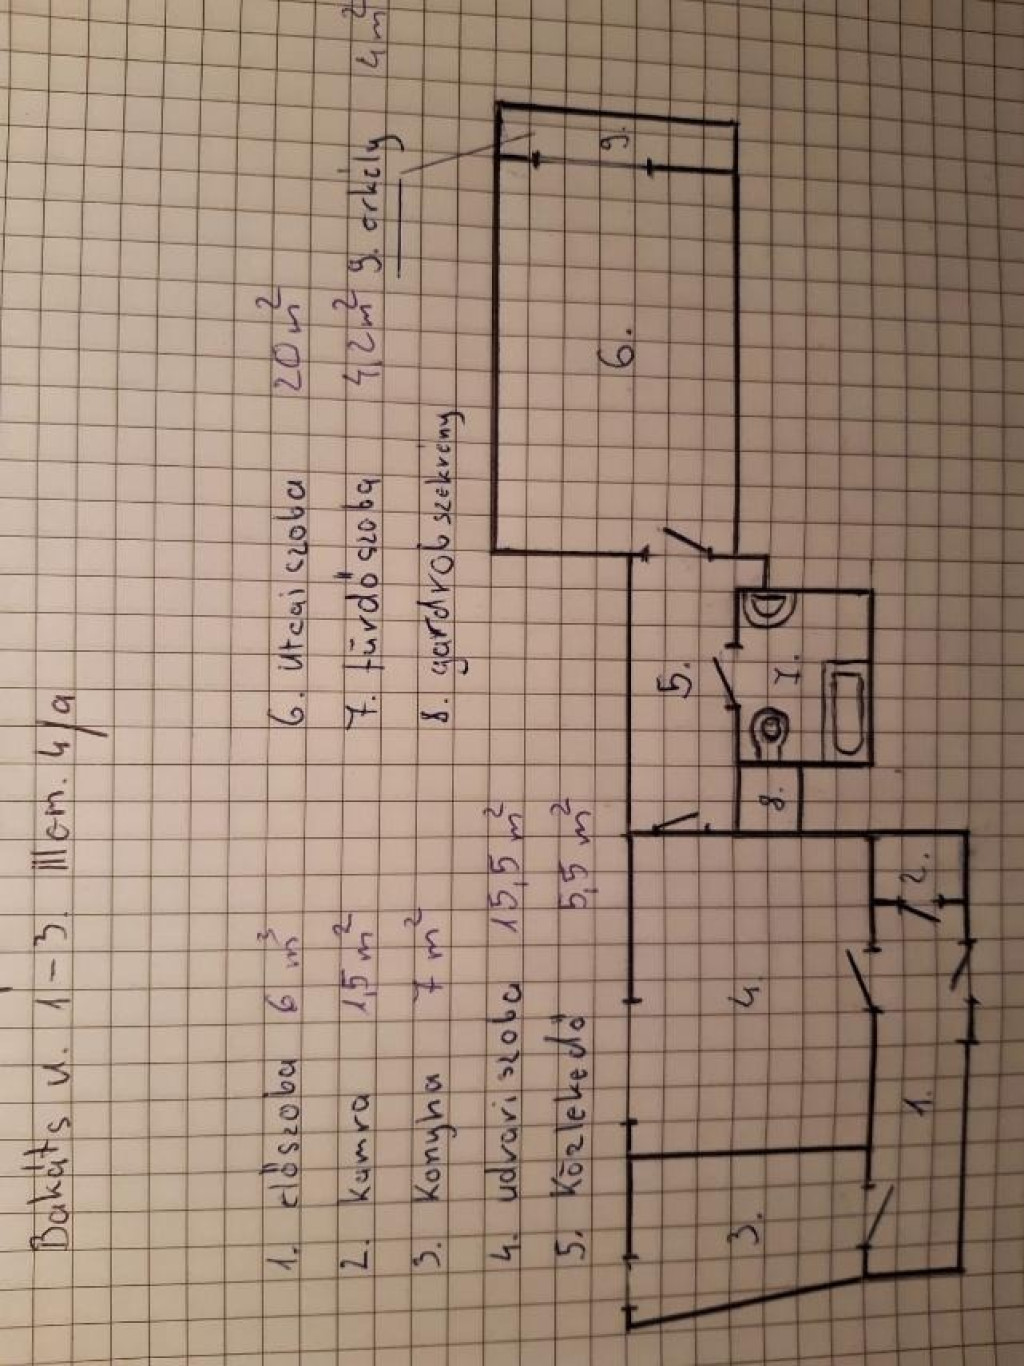 Bakáts u. 1-3. III em. 4/a
1. előszoba 6 m³
2. kamra 1,5 m²
3. Konyha 7 m²
4. udvari szoba 15,5 m²
5. Közlekedő 5,5 m²
6. Utcai szoba 20 m²
7. fürdőszoba 4,2 m²
8. gardrobszekrény
9. erkély 4 m²
3.
4.
1.
2.
8.
5.
7.
6.
9.